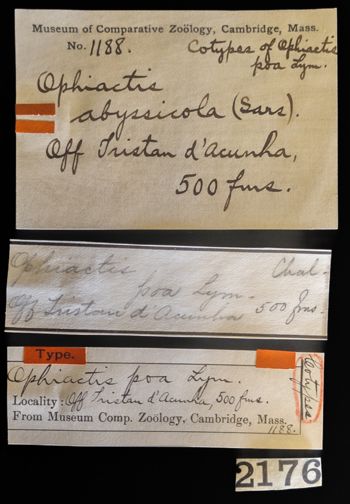 Museum of Comparative Zoölogy, Cambridge, Mass.
No. 1188. Cotypes of Ophiactis
poa Lym.
Ophiactis
abyssicola (Sars).
Off Tristan d'Acunha,
500 fms.
Ophiactis Chal-
poa Lym.
Off Tristan d'Acunha 500 fms-
Type.
Ophiactis poa Lym.
Cotypes
Locality: Off Tristan d'Acunha, 500 fms.
From Museum Comp. Zoölogy, Cambridge, Mass.
1188.
2176